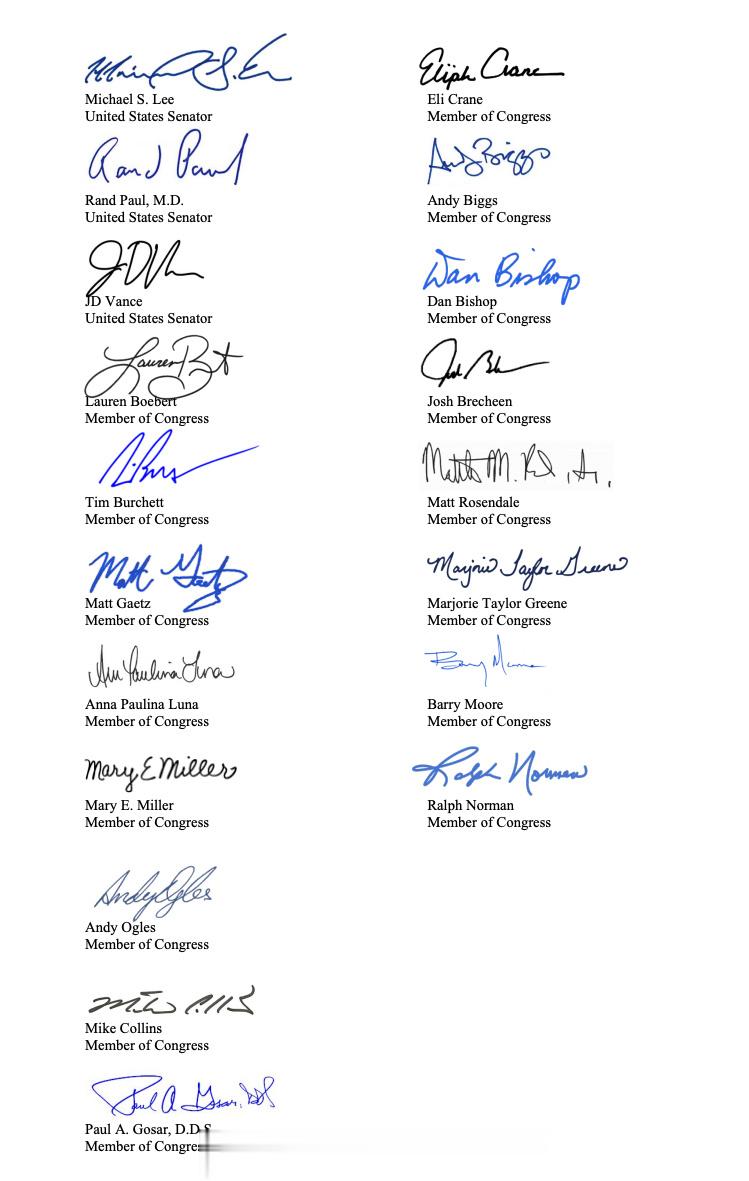 Michael S. Lee
United States Senator
Rand Paul
Rand Paul, M.D.
United States Senator
JD Vance
United States Senator
Lauren Boebert
Member of Congress
Tim Burchett
Member of Congress
Matt Gaetz
Matt Gaetz
Member of Congress
Anna Paulina Luna
Member of Congress
Mary E Miller
Mary E. Miller
Member of Congress
Andy Ogles
Andy Ogles
Member of Congress
Mike Collins
Member of Congress
Paul A. Gosar, DDS
Paul A. Gosar, D.D.S
Member of Congress
Elijah Crane
Eli Crane
Member of Congress
Andy Biggs
Andy Biggs
Member of Congress
Dan Bishop
Dan Bishop
Member of Congress
Josh Brecheen
Member of Congress
Matt Rosendale
Member of Congress
Marjorie Taylor Greene
Marjorie Taylor Greene
Member of Congress
Barry Moore
Member of Congress
Ralph Norman
Ralph Norman
Member of Congress